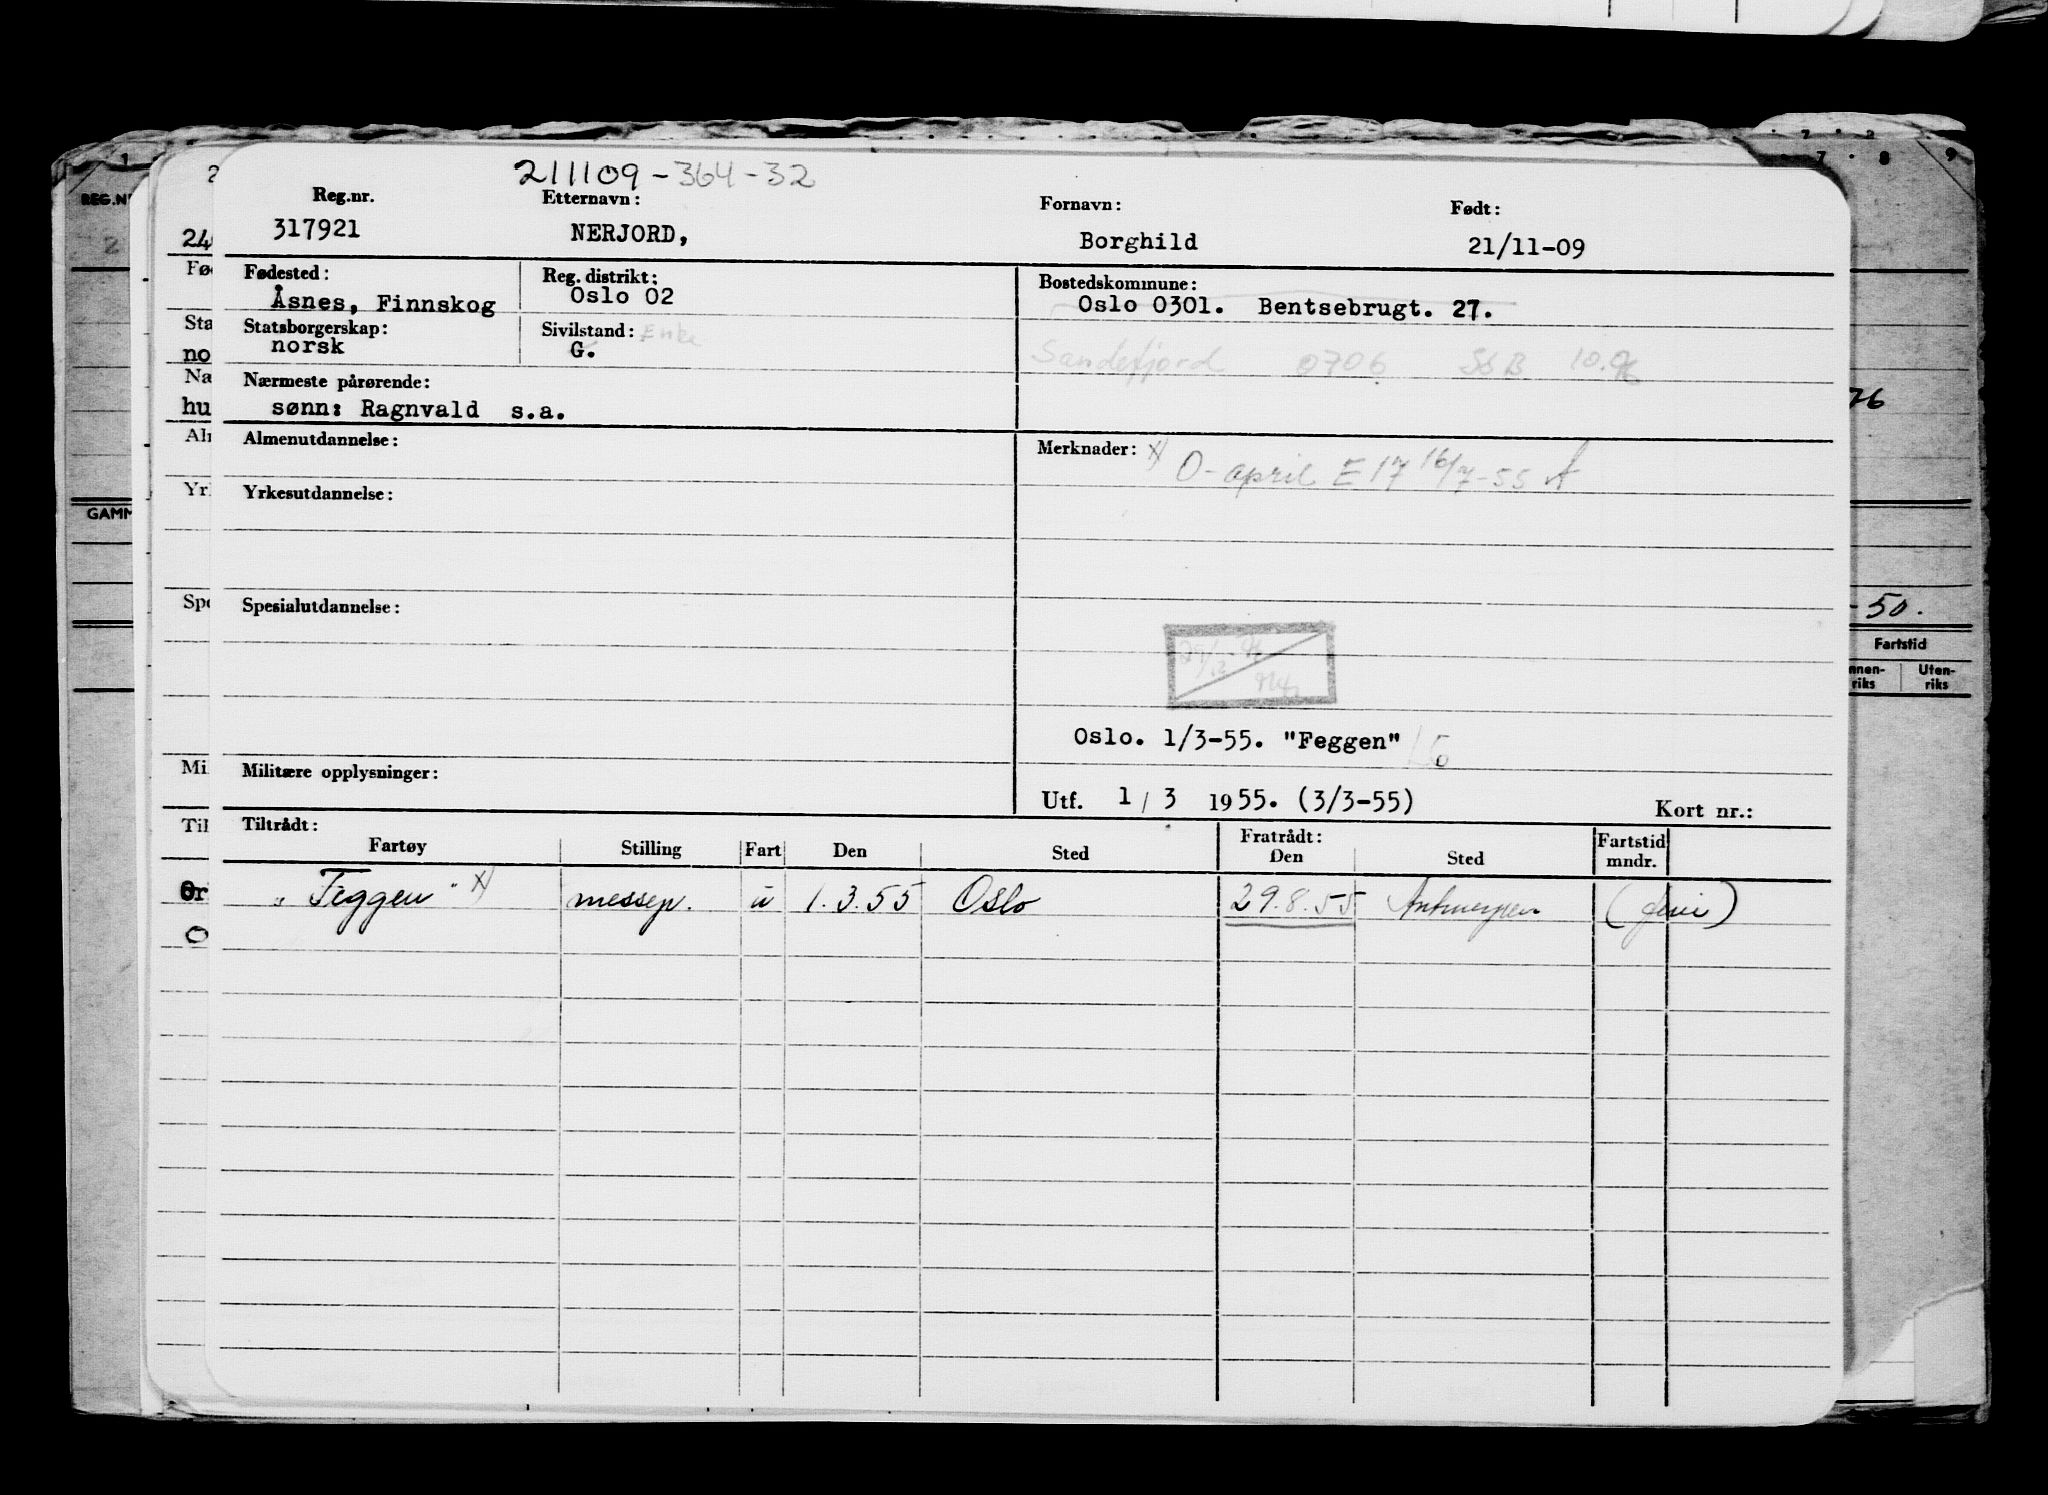 211109-364-32
Reg.nr. Etternavn: Fornavn: Født:
317921 NERJORD, Borghild 21/11-09
Fødested: Reg. distrikt: Bostedskommune:
Åsnes, Finnskog Oslo 02 Oslo 0301. Bentsebrugt. 27.
Statsborgerskap: Sivilstand: Enke
norsk G. Sandefjord 0706 SSB
Nærmeste pårørende:
sønn: Ragnvald s.a.
Almenutdannelse: Merknader: x)
O-april E 17 16/7-55 A
Yrkesutdannelse:
Spesialutdannelse:
Oslo. 1/3-55. "Feggen"
Militære opplysninger:
Utf. 1/3 1955. (3/3-55) Kort nr.:
Tiltrådt: Fratrådt: Fartstid
Fartøy Stilling Fart Den Sted Den Sted mndr.
"Feggen" x) messep. u 1.3.55 Oslo 29.8.55 Antwerpen
REG.N
GAMM
76
-50.
Fartstid
nnen-
riks
Uten-
riks